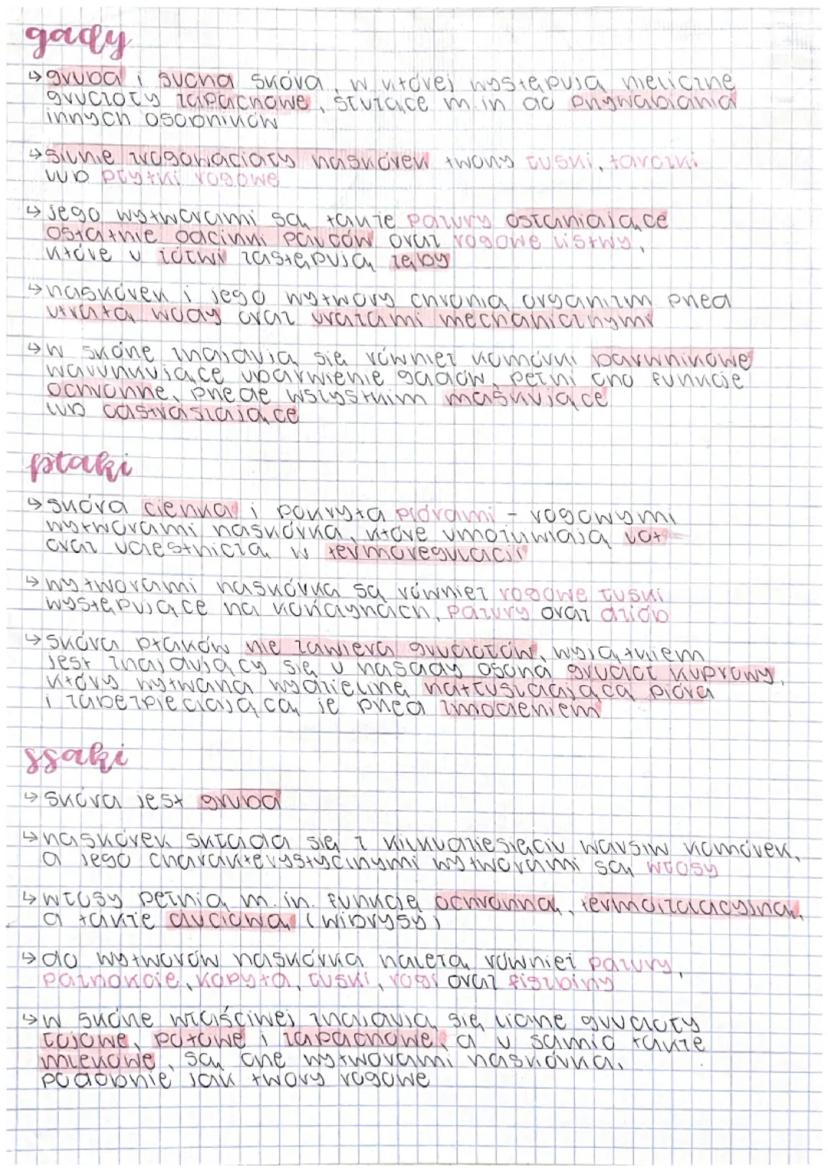 gady
↳ gruba i sucha skóra, w której występują nieliczne
gruczoły zapachowe, służące m.in do przywabiania
innych osobników
↳ silnie zrogowaciały naskórek tworzy łuski, tarczki
lub płytki rogowe
↳ jego wytworami są także pazury osłaniające
ostatnie odcinki palców oraz rogowe listwy,
które u żółwi zastępują zęby
↳ naskórek i jego wytwory chronią organizm przed
utratą wody oraz urazami mechanicznymi
↳ w skórze znajdują się również komórki barwnikowe
warunkujące ubarwienie gadów, pełni ono funkcje
ochronne, przede wszystkim maskujące
lub odstraszające
ptaki
↳ skóra cienka i pokryta piórami - rogowymi
wytworami naskórka, które umożliwiają lot
oraz uczestniczą w termoregulacji
↳ wytworami naskórka są również rogowe łuski
występujące na kończynach, pazury oraz dziób
↳ skóra ptaków nie zawiera gruczołów, wyjątkiem
jest znajdujący się u nasady ogona gruczoł kuprowy,
który wytwarza wydzielinę natłuszczającą pióra
i zabezpieczającą je przed zmoczeniem
ssaki
↳ skóra jest gruba
↳ naskórek składa się z kilkudziesięciu warstw komórek,
a jego charakterystycznymi wytworami są włosy
↳ włosy pełnią m.in. funkcję ochronną, termoizolacyjną,
a także czuciową (wibrysy)
↳ do wytworów naskórka należą również pazury,
paznokcie, kopyta, łuski, rogi oraz fiszbiny
↳ w skórze właściwej znajdują się liczne gruczoły
łojowe, potowe i zapachowe, a u samic także
mlekowe, są one wytworami naskórka,
podobnie jak twory rogowe